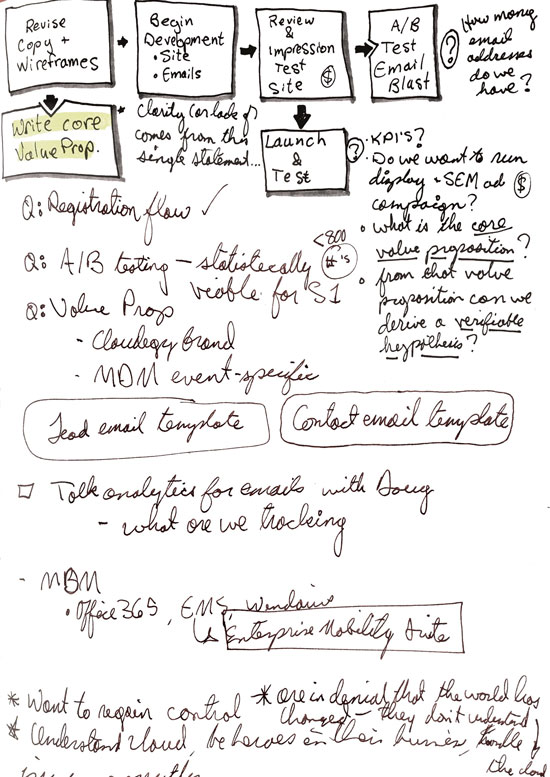 Revise
Copy +
Wireframes
Begin
Development
• Site
• Emails
Review
&
Impression
Test
Site $
A/B
Test
Email
Blast
? How many
email
addresses
do we
have?
Write core
Value Prop.
* Clarity (or lack of)
comes from this
single statement...
Launch
&
Test
? • KPI'S?
• Do we want to run
display + SEM ad $
campaign?
• what is the core
value proposition?
• from that value
proposition can we
derive a verifiable
hypothesis?
Q: Registration flow ✓
<800
#'s
Q: A/B testing – statistically
viable for S1
Q: Value Prop
- Cloudegy brand
- MDM event-specific
Lead email template
Contact email template
□ Talk analytics for emails with Doug
- what are we tracking
- MDM
• Office 365, EMS,
↳ Enterprise Mobility Suite
* Want to regain control
* are in denial that the world has
changed – they don't understand
* Understand cloud, be heroes in their
the cloud